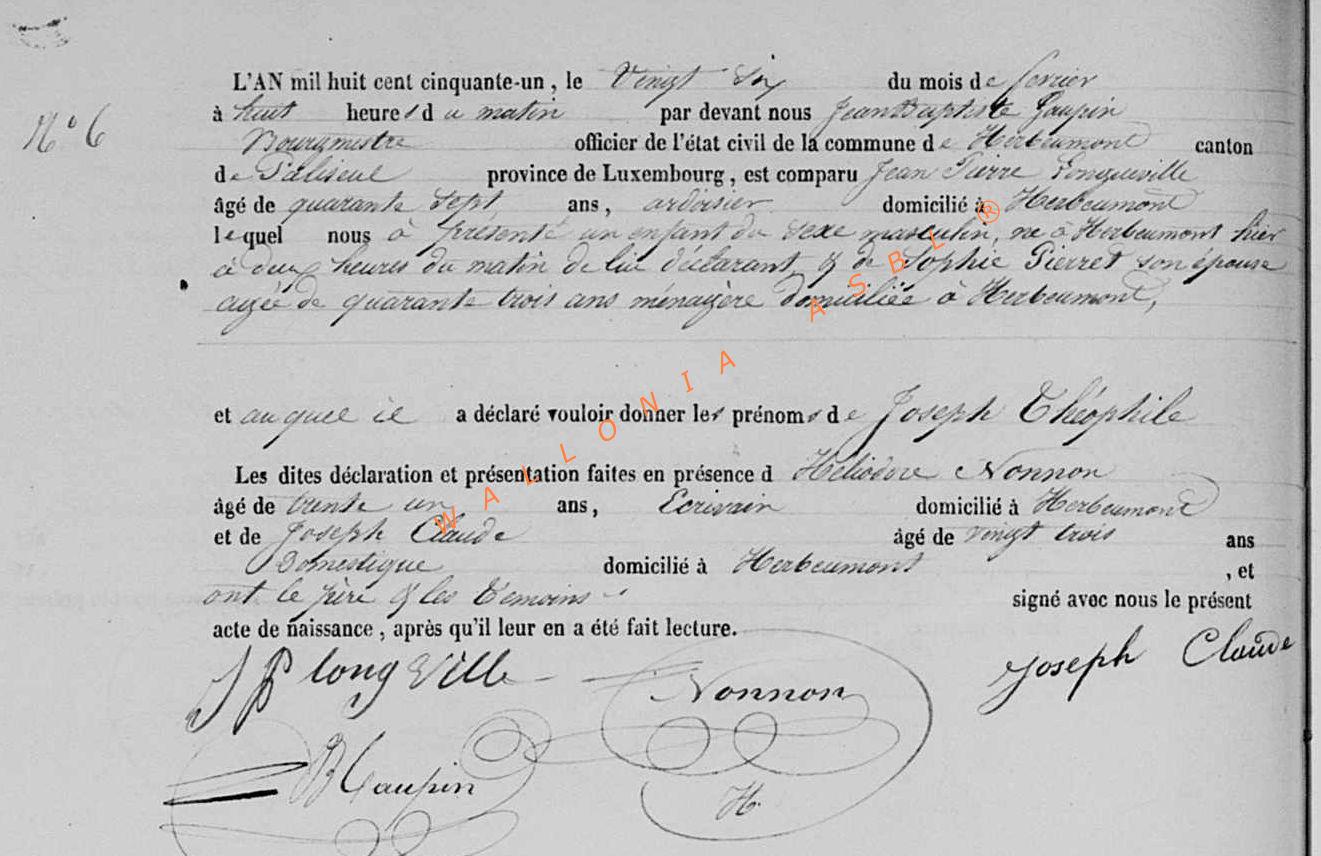 N° 6
L'AN mil huit cent cinquante-un, le Vingt Six du mois de fevrier
à huit heures du matin par devant nous Jean Baptiste Gaupin
Bourgmestre officier de l'état civil de la commune de Herbeumont canton
de Paliseul province de Luxembourg, est comparu Jean Pierre Longueville
âgé de quarante sept ans, ardoisier domicilié à Herbeumont
lequel nous à présenté un enfant du sexe masculin, né à Herbeumont hier
à deux heures du matin de lui déclarant, & de Sophie Pierret son épouse
agée de quarante trois ans ménagère domiciliée à Herbeumont,
et auquel il a déclaré vouloir donner les prénoms de Joseph Théophile
Les dites déclaration et présentation faites en présence d Héliodore Nonnon
âgé de trente un ans, Ecrivain domicilié à Herbeumont
et de Joseph Claude âgé de vingt trois ans
Domestique domicilié à Herbeumont, et
ont le père & les témoins signé avec nous le présent
acte de naissance, après qu'il leur en a été fait lecture.
JP longville Nonnon Joseph Claude
H.
WALLONIA ASBL ®